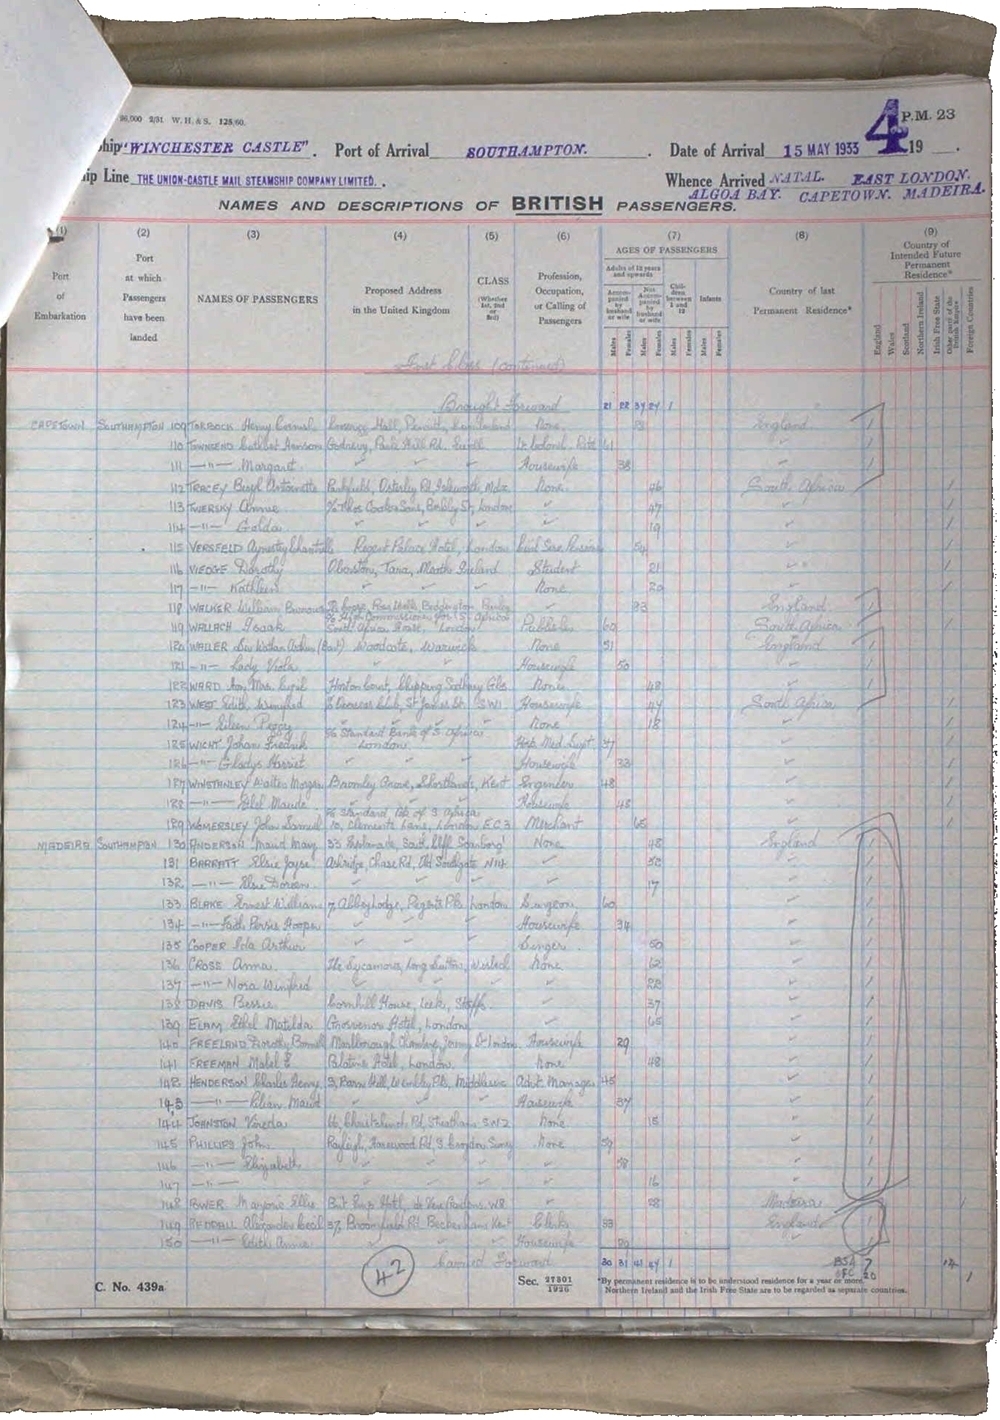 96,000 2/31 W. H. & S. 125/60.
4 P.M. 23
ship "WINCHESTER CASTLE". Port of Arrival SOUTHAMPTON. Date of Arrival 15 MAY 1933 19
ship Line THE UNION-CASTLE MAIL STEAMSHIP COMPANY LIMITED. Whence Arrived NATAL. EAST LONDON.
ALGOA BAY. CAPETOWN. MADEIRA.
NAMES AND DESCRIPTIONS OF BRITISH PASSENGERS.
(1) (2) (3) (4) (5) (6) (7) (8) (9)
Port of Embarkation
Port at which Passengers have been landed
NAMES OF PASSENGERS
Proposed Address in the United Kingdom
CLASS (Whether 1st, 2nd or 3rd)
Profession, Occupation, or Calling of Passengers
AGES OF PASSENGERS
Adults of 12 years and upwards
Accompanied by husband or wife
Not Accompanied by husband or wife
Children between 1 and 12
Infants
Males Females Males Females Males Females Males Females
Country of last Permanent Residence*
Country of Intended Future Permanent Residence*
England Wales Scotland Northern Ireland Irish Free State Other parts of the British Empire Foreign Countries
First Class (continued)
Brought Forward 21 22 34 24 1
CAPETOWN SOUTHAMPTON 109 TORBOCK Henry Hall, Penrith, None England
110 TOWNSEND Cuthbert Park Hill Rd. Lt Colonel Retd 61
111 —"— Margaret Housewife 38
112 TRACEY Beryl Antoinette Osterley Rd, Isleworth Mdx None 46 South Africa
113 TWERSKY Annie c/o Thos Cook & Sons, Berkley St, London 47
114 —"— Golda 19
115 VERSFELD Regent Palace Hotel, London Civil Serv. Pension
116 VIEDGE Dorothy Tara, Meath Ireland Student 21
117 —"— Kathleen None 20
118 WALKER William Beddington 33 England
c/o High Commissioner for S. Africa
119 WALLACH Isaak South Africa House, London Publisher 60 South Africa
120 WALLER Sir Wathen (Bart) Woodcote, Warwick None 51 England
121 —"— Lady Viola Housewife 50
122 WARD Hon. Mrs. Cyril Horton Court, Chipping Sodbury Glos None 48
123 WEST Edith Winifred c/o Overseas Club, St James St. SW1 Housewife 47 South Africa
124 —"— Eileen Peggy None 18
c/o Standard Bank of S Africa
125 WICHT Johan Fredrik London Hosp. Med. Supt 37
126 —"— Gladys Harriet Housewife 33
127 WINSTANLEY Walter Morgan Bromley Grove, Shortlands, Kent Engineer 48
128 —"— Ethel Maude Housewife 48
c/o Standard Bk of S Africa
129 WOMERSLEY John Samuel 10, Clements Lane, London EC3 Merchant 65
MADEIRA SOUTHAMPTON 130 ANDERSON Maud May 33 Esplanade, South Cliff Scarboro' None 48 England
131 BARRATT Elsie Joyse Ashridge, Chase Rd, Old Southgate N14 52
132 —"— Elsie Doreen 17
133 BLAKE Ernest William 7, Abbey Lodge, Regents Pk. London Surgeon 60
134 —"— Faith Persis Hooper Housewife 34
135 COOPER Ida Arthur Singer 50
136 CROSS Anna The Sycamore, Long Sutton, Wisbech None 62
137 —"— Nora Winifred 22
138 DAVIS Bessie Cornhill House, Leek, Staffs. 37
139 ELAM Ethel Matilda Grosvenor Hotel, London 65
140 FREELAND Dorothy Marlborough Chambers, Jermyn St London Housewife 29
141 FREEMAN Mabel E Palatine Hotel, London. None 48
142 HENDERSON Charles Henry 3, Barn Hill, Wembley Pk, Middlesex Advt Manager 45
143 —"— Lilian Maud Housewife 37
144 JOHNSTON Vreda 66, Christchurch Rd, Streatham SW2 None 15
145 PHILLIPS John Rayleigh, Rd, S Croydon Surrey None 59
146 —"— Elizabeth 58
147 —"— 16
148 POWER Marjorie Ellis Brit Emp Hotel, de Vere Gardens. W8 28 Madeira
149 REDDALL Alexander Cecil 57, Broomfield Rd Beckenham, Kent Clerk 33 England
150 —"— Edith Annie Housewife 29
Carried Forward 30 31 41 44 1
42
BSA 7
20 12 1
C. No. 439a
Sec. 27801/1926
*By permanent residence is to be understood residence for a year or more.
Northern Ireland and the Irish Free State are to be regarded as separate countries.